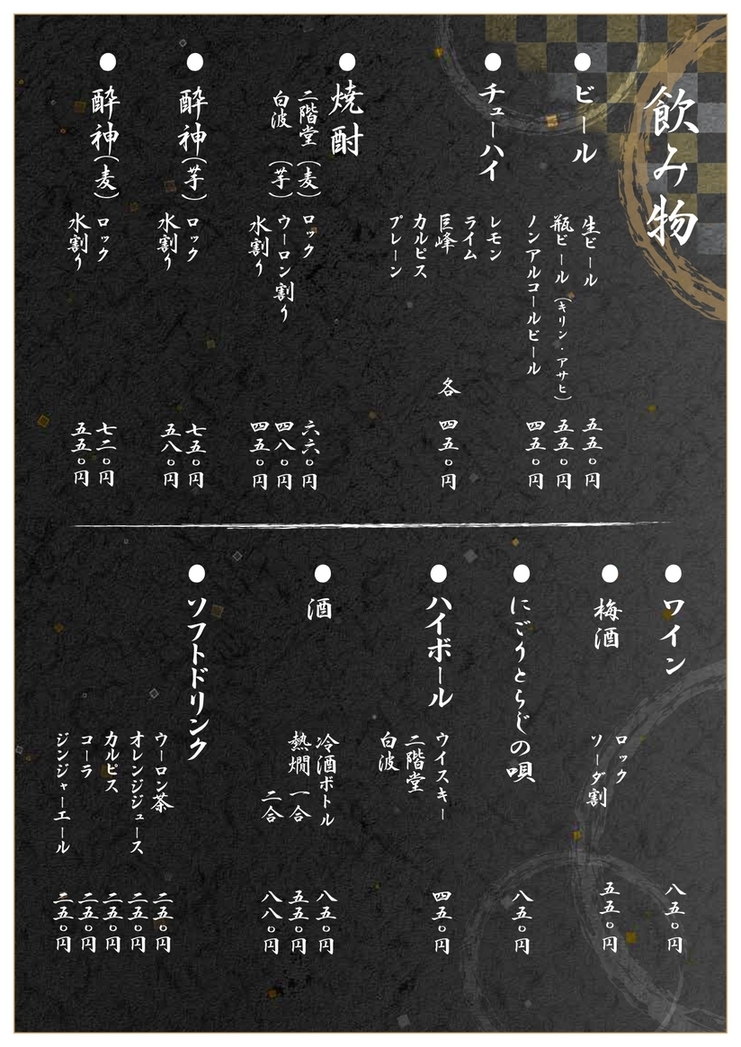 飲み物
●ビール
生ビール 五五〇円
瓶ビール（キリン・アサヒ） 五五〇円
ノンアルコールビール 四五〇円
●チューハイ
レモン
ライム
巨峰 各 四五〇円
カルピス
プレーン
●焼酎
二階堂（麦）
白波（芋）
ロック 六六〇円
ウーロン割り 四八〇円
水割り 四五〇円
●酔神（芋）
ロック 七五〇円
水割り 五八〇円
●酔神（麦）
ロック 七二〇円
水割り 五五〇円
●ワイン 八五〇円
●梅酒
ロック
ソーダ割 五五〇円
●にごりとらじの唄 八五〇円
●ハイボール
ウイスキー 四五〇円
二階堂
白波
●酒
冷酒ボトル 八五〇円
熱燗 一合 五五〇円
二合 八八〇円
●ソフトドリンク
ウーロン茶 二五〇円
オレンジジュース 二五〇円
カルピス 二五〇円
コーラ 二五〇円
ジンジャーエール 二五〇円